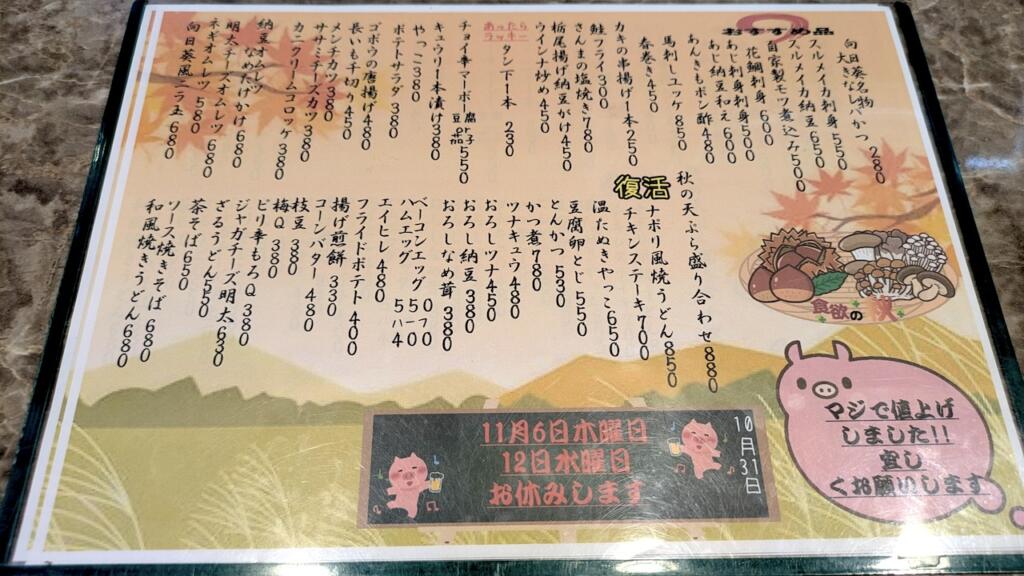 おすすめ品
向日葵名物
大きなレバかつ 280
スルメイカ刺身 550
スルメイカ納豆 650
自家製モツ煮込み 500
花鯛刺身 600
あじ刺身 500
あじ納豆和え 600
あんきもポン酢 480
馬刺しユッケ 850
春巻き 450
カキの串揚げ一本 250
鮭フライ 300
さんまの塩焼き 780
栃尾揚げ納豆がけ 450
ウインナ炒め 450
あったら
ラッキー
タン下一本 230
チョイ辛マーボー豆腐 550
やっこ 380
キュウリ一本漬け 380
ポテトサラダ 380
ゴボウの唐揚げ 480
長いも千切り 450
メンチカツ 380
ササミチーズカツ 380
カニクリームコロッケ 380
納豆オムレツ
なめたけがけ 680
明太チーズオムレツ 680
ネギオムレツ 580
向日葵風ニラ玉 680
秋の天ぷら盛り合わせ 880
復活
ナポリ風焼うどん 850
チキンステーキ 700
温たぬきやっこ 650
豆腐卵とじ 550
とんかつ 530
かつ煮 780
ツナキュウ 480
おろしツナ 450
おろし納豆 380
おろしなめ茸 380
ベーコンエッグ
ハムエッグ
エイヒレ 480
フライドポテト 400
揚げ煎餅 330
コーンバター 480
枝豆 380
梅Q 380
ピリ辛もろQ 380
ジャガチーズ明太 630
ざるうどん 550
茶そば 650
ソース焼きそば 680
和風焼きうどん 680
食欲の秋
マジで値上げ
しました!!
宜し
くお願いします
10月31日
11月6日木曜日
12日水曜日
お休みします